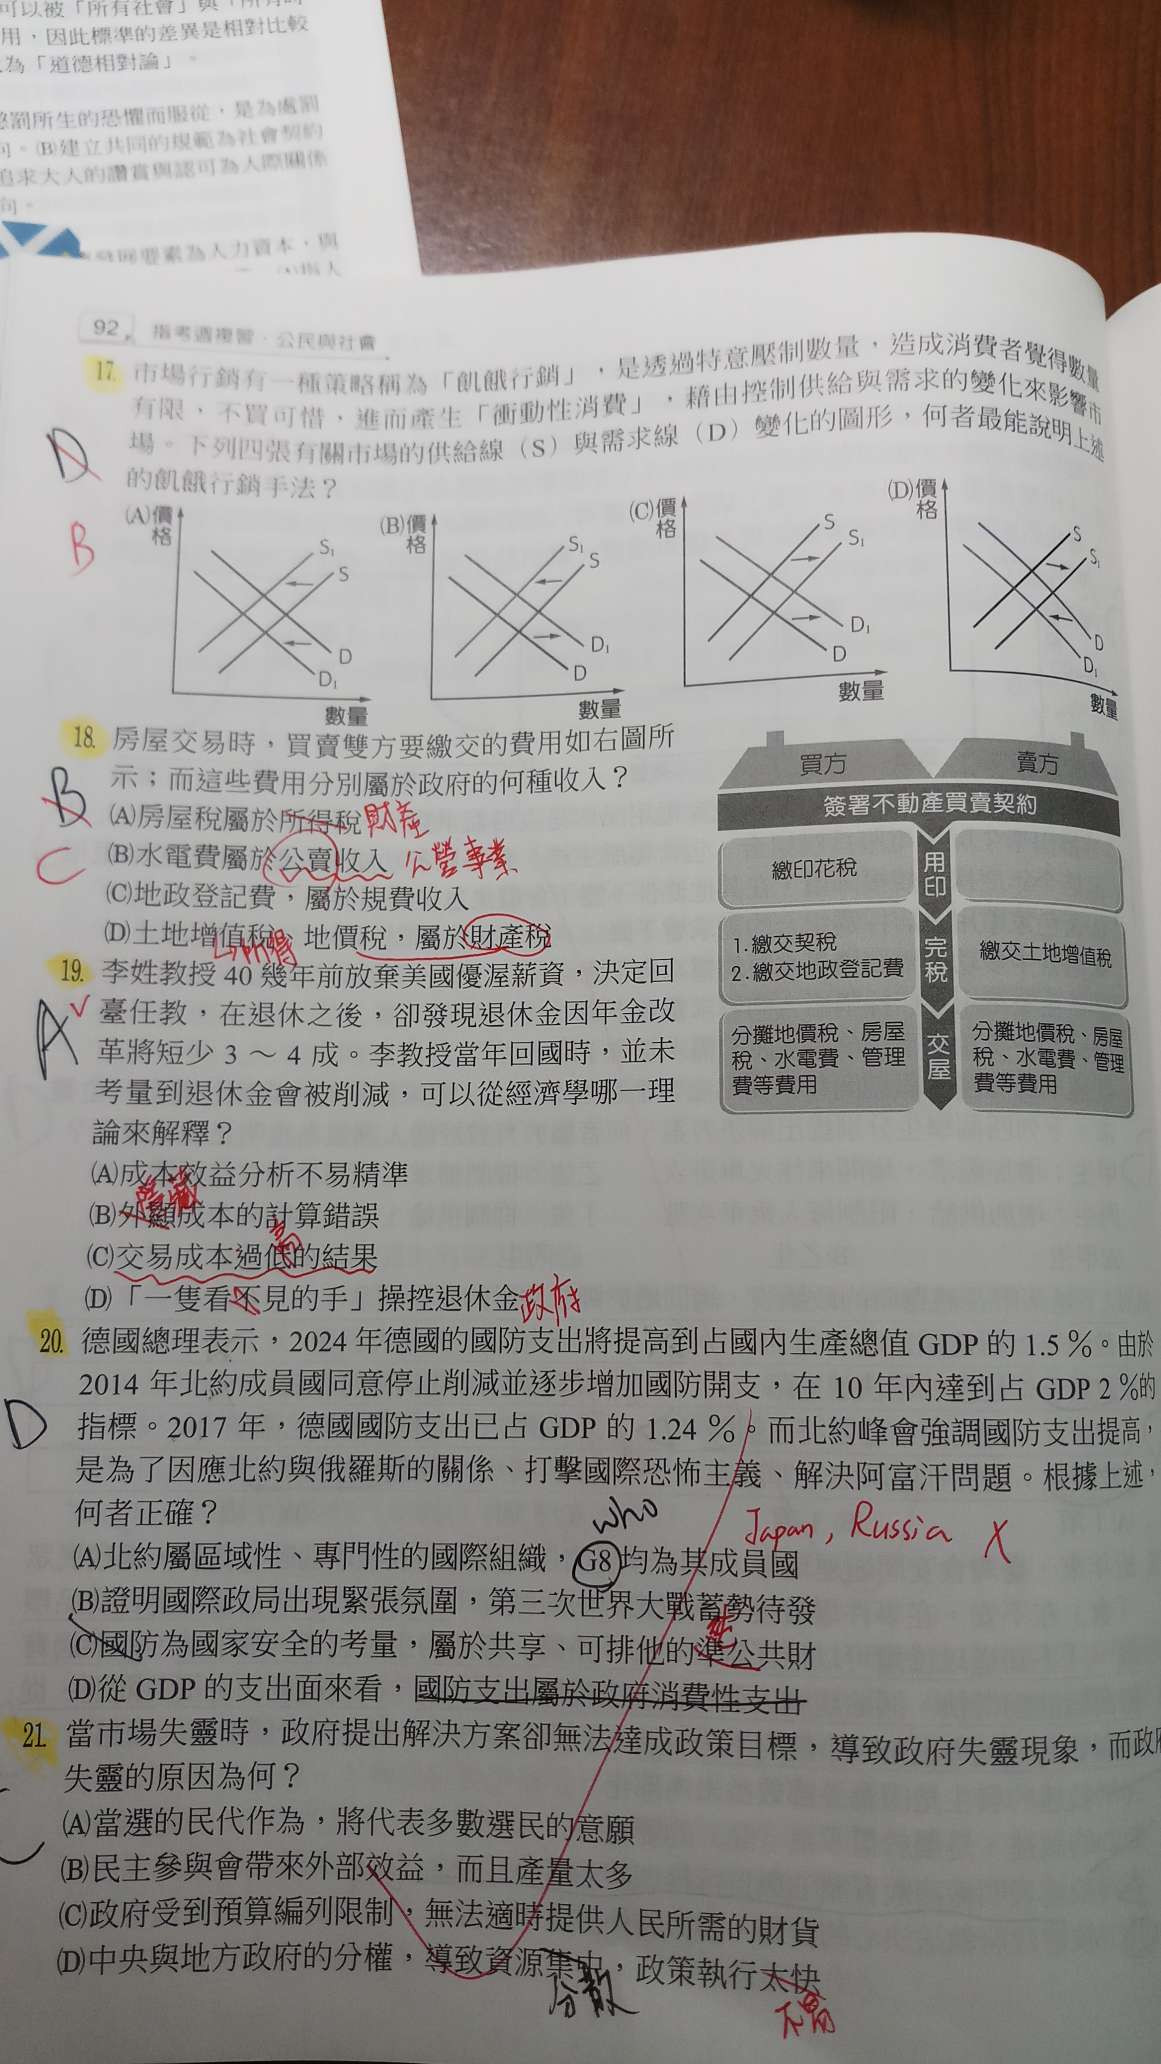 可以被「所有社會」與「所有時
用，因此標準的差異是相對比較
為「道德相對論」。
懲罰所生的恐懼而服從，是為處罰
向。(B)建立共同的規範為社會契約
追求大人的讚賞與認可為人際關係
向。
要素為人力資本，與
92 指考週複習．公民與社會
17. 市場行銷有一種策略稱為「飢餓行銷」，是透過特意壓制數量，造成消費者覺得數量
有限、不買可惜，進而產生「衝動性消費」，藉由控制供給與需求的變化來影響市
場。下列四張有關市場的供給線（S）與需求線（D）變化的圖形，何者最能說明上述
的飢餓行銷手法？
D
B
(A)價格 S₁ S D D₁ 數量
(B)價格 S₁ S D₁ D 數量
(C)價格 S S₁ D₁ D 數量
(D)價格 S S₁ D D₁ 數量
18. 房屋交易時，買賣雙方要繳交的費用如右圖所
示；而這些費用分別屬於政府的何種收入？
B
C
(A)房屋稅屬於所得稅 財產
(B)水電費屬於公賣收入 公營事業
(C)地政登記費，屬於規費收入
(D)土地增值稅、地價稅，屬於財產稅
↳所得
買方 賣方
簽署不動產買賣契約
繳印花稅
用印
1.繳交契稅
2.繳交地政登記費
完稅
繳交土地增值稅
分攤地價稅、房屋
稅、水電費、管理
費等費用
交屋
分攤地價稅、房屋
稅、水電費、管理
費等費用
19. 李姓教授 40 幾年前放棄美國優渥薪資，決定回
臺任教，在退休之後，卻發現退休金因年金改
革將短少 3 ～ 4 成。李教授當年回國時，並未
考量到退休金會被削減，可以從經濟學哪一理
論來解釋？
A
(A)成本效益分析不易精準
隱藏
(B)外顯成本的計算錯誤
高
(C)交易成本過低的結果
(D)「一隻看不見的手」操控退休金 政府
20. 德國總理表示，2024 年德國的國防支出將提高到占國內生產總值 GDP 的 1.5 %。由於
2014 年北約成員國同意停止削減並逐步增加國防開支，在 10 年內達到占 GDP 2 %的
指標。2017 年，德國國防支出已占 GDP 的 1.24 %。而北約峰會強調國防支出提高，
是為了因應北約與俄羅斯的關係、打擊國際恐怖主義、解決阿富汗問題。根據上述，
何者正確？
D
who
Japan, Russia X
(A)北約屬區域性、專門性的國際組織，G8 均為其成員國
(B)證明國際政局出現緊張氛圍，第三次世界大戰蓄勢待發
(C)國防為國家安全的考量，屬於共享、可排他的準公共財
(D)從 GDP 的支出面來看，國防支出屬於政府消費性支出
21. 當市場失靈時，政府提出解決方案卻無法達成政策目標，導致政府失靈現象，而政府
失靈的原因為何？
(A)當選的民代作為，將代表多數選民的意願
(B)民主參與會帶來外部效益，而且產量太多
(C)政府受到預算編列限制，無法適時提供人民所需的財貨
(D)中央與地方政府的分權，導致資源集中，政策執行太快
分散